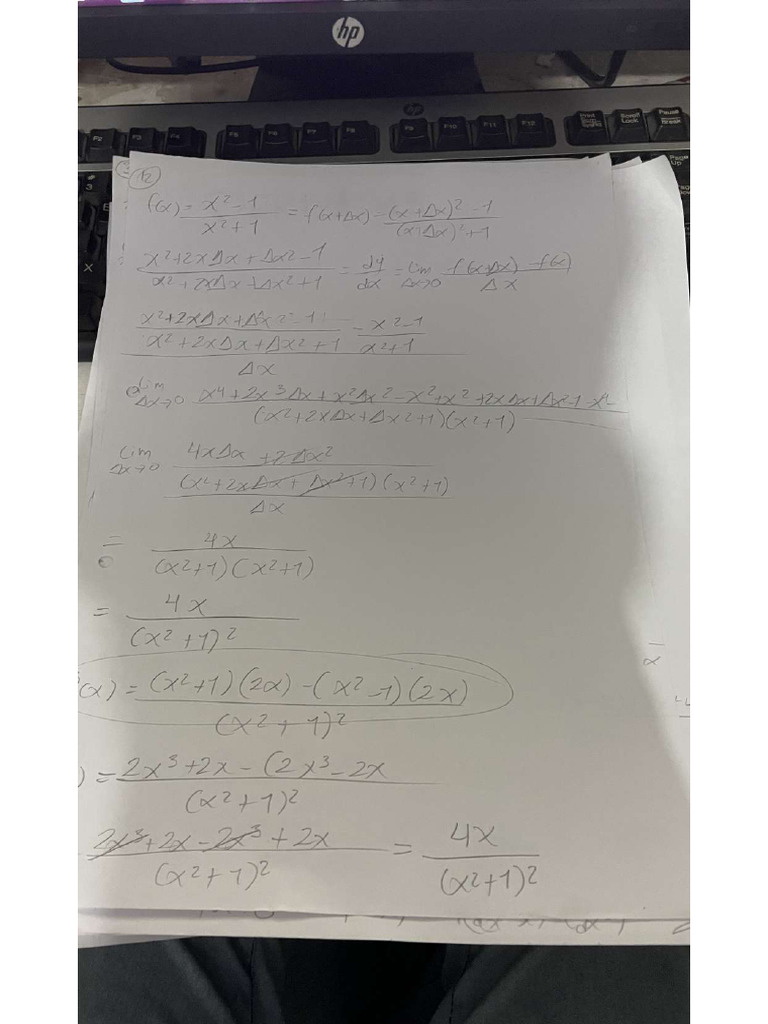 hp
hp
F2 F3 F4 F5 F6 F7 F8 F9 F10 F11 F12 Scroll Lock Pause Break
3
Page Up
X
12
f(x) = x²-1 / x²+1 = f(x+Δx) - (x+Δx)²-1 / (x+Δx)²+1
x²+2xΔx+Δx2-1 / x²+2xΔx+Δx²+1 = dy/dx = lim Δx→0 f(x+Δx) - f(x) / Δx
x²+2xΔx+Δx²-1 / x²+2xΔx+Δx²+1 - x²-1 / x²+1
Δx
lim Δx→0 x⁴+2x³Δx+x²Δx²-x²+x²+2xΔx+Δx²-1-x⁴ / (x²+2xΔx+Δx²+1)(x²+1)
lim Δx→0 4xΔx+2Δx² / (x²+2xΔx+Δx²+1)(x²+1)
Δx
= 4x / (x²+1)(x²+1)
= 4x / (x²+1)²
(x) = (x²+1)(2x)-(x²-1)(2x) / (x²+1)²
) = 2x³+2x-(2x³-2x / (x²+1)²
2x³+2x-2x³+2x / (x²+1)² = 4x / (x²+1)²